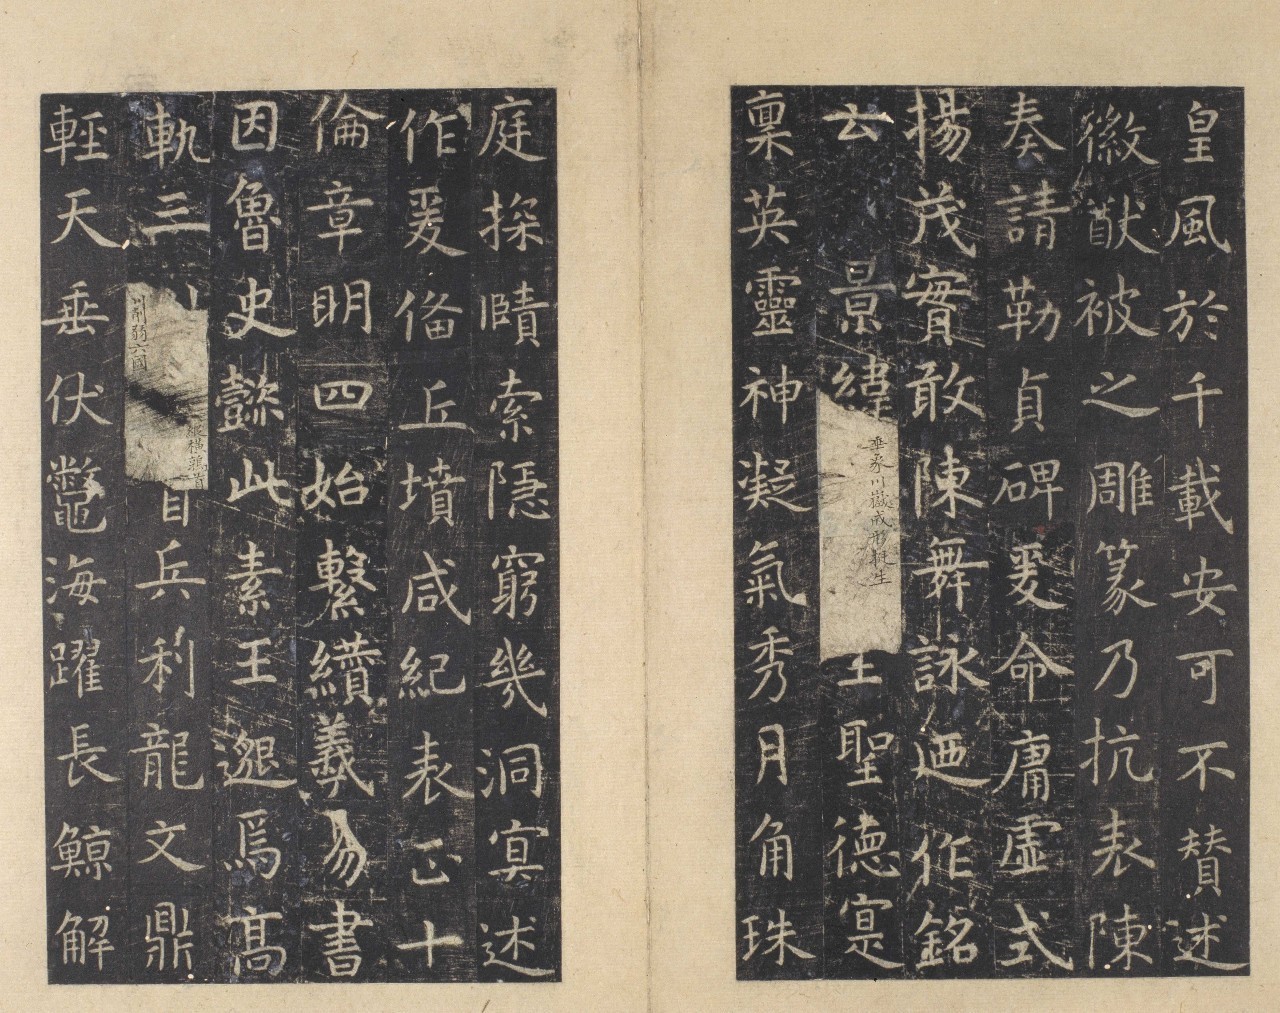 皇風於千載安可不贊述
徽猷被之雕篆乃抗表陳
奏請勒貞碑爰命庸虛式
揚茂實敢陳舞詠迺作銘
云景緯
垂象川嶽成形挺生
聖德寔
稟英靈神凝氣秀月角珠
庭探賾索隱窮幾洞冥述
作爰俻丘墳咸紀表正十
倫章明四始繫纘羲易書
因魯史懿此素王邈焉高
軌三
川削弱六國
縱橫鶉首
首兵利龍文鼎
輕天垂伏鼈海躍長鯨解